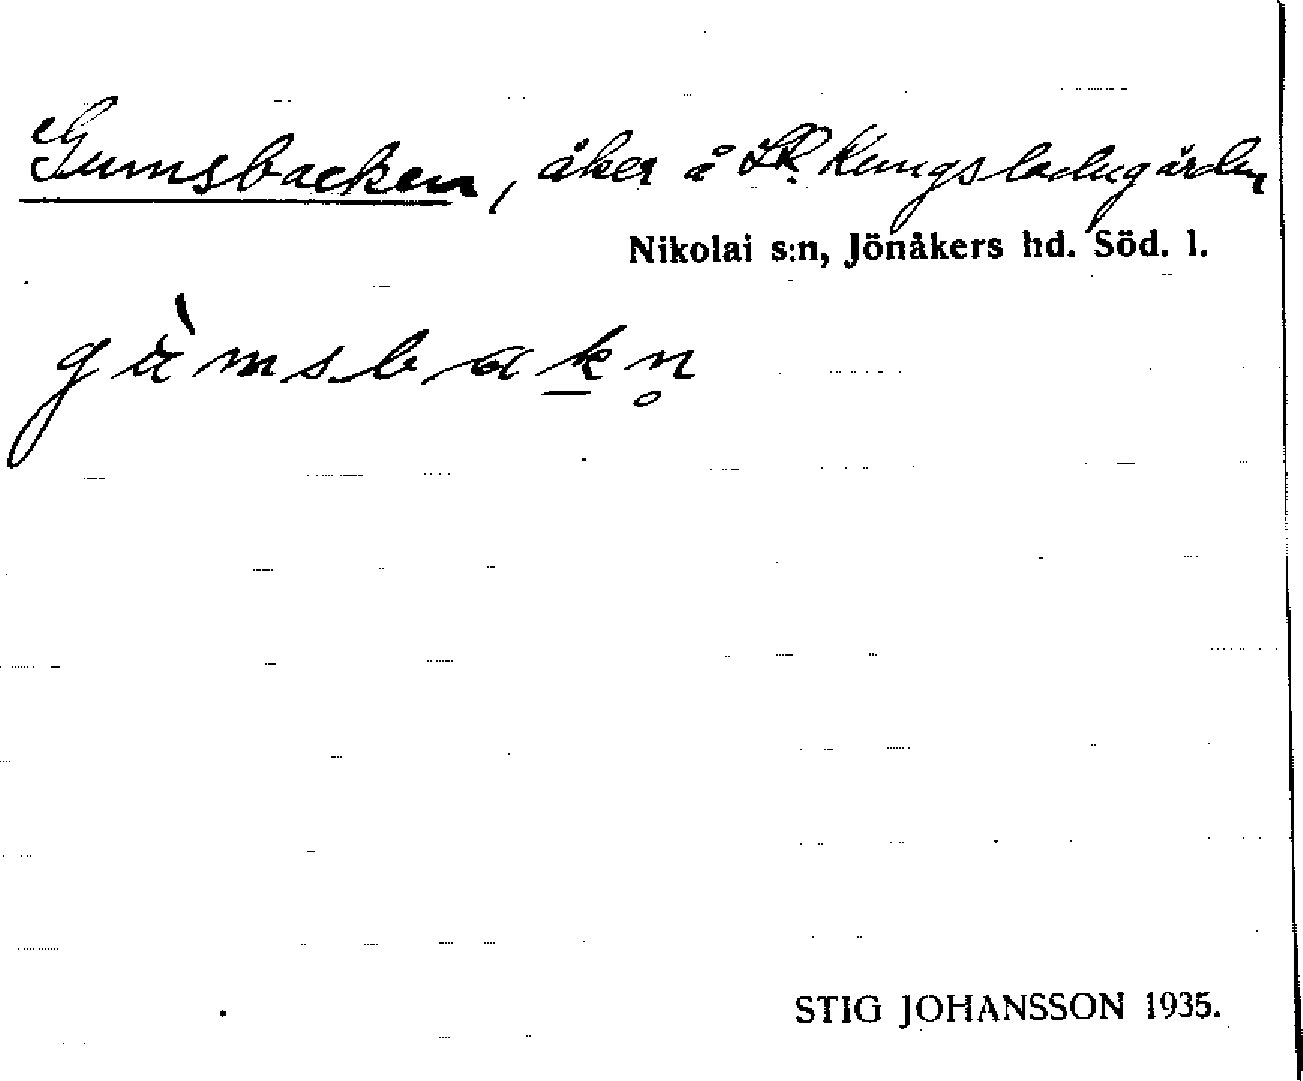 Gumsbacken, åker å St. Kungsladugården
Nikolai s:n, Jönåkers hd. Söd. l.
gùmsbak̲n̥
STIG JOHANSSON 1935.